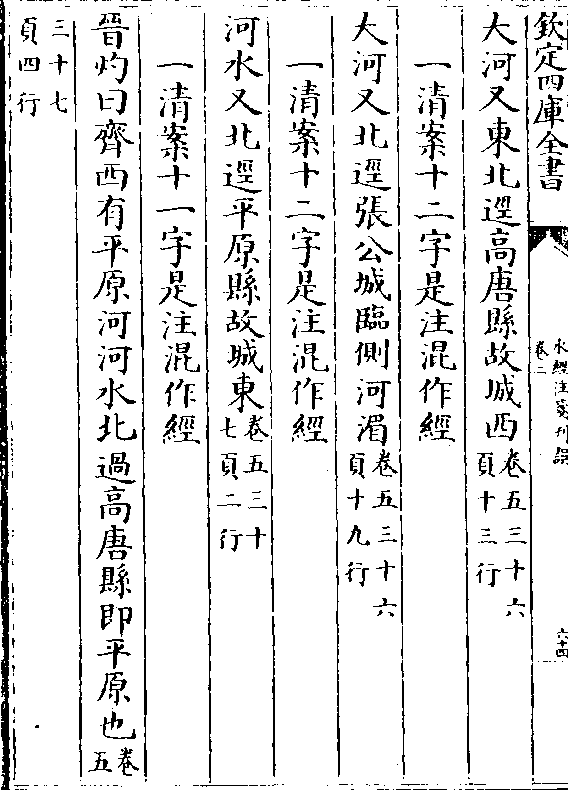 欽定四庫全書
水經注箋刊誤
卷二
六十四
大河又東北逕高唐縣故城西卷五三十六頁十三行
一清案十二字是注混作經
大河又北逕張公城臨側河湄卷五三十六頁十九行
一清案十二字是注混作經
河水又北逕平原縣故城東卷五三十七頁二行
一清案十一字是注混作經
晉灼曰齊西有平原河河水北過高唐縣即平原也卷五
三十七頁四行